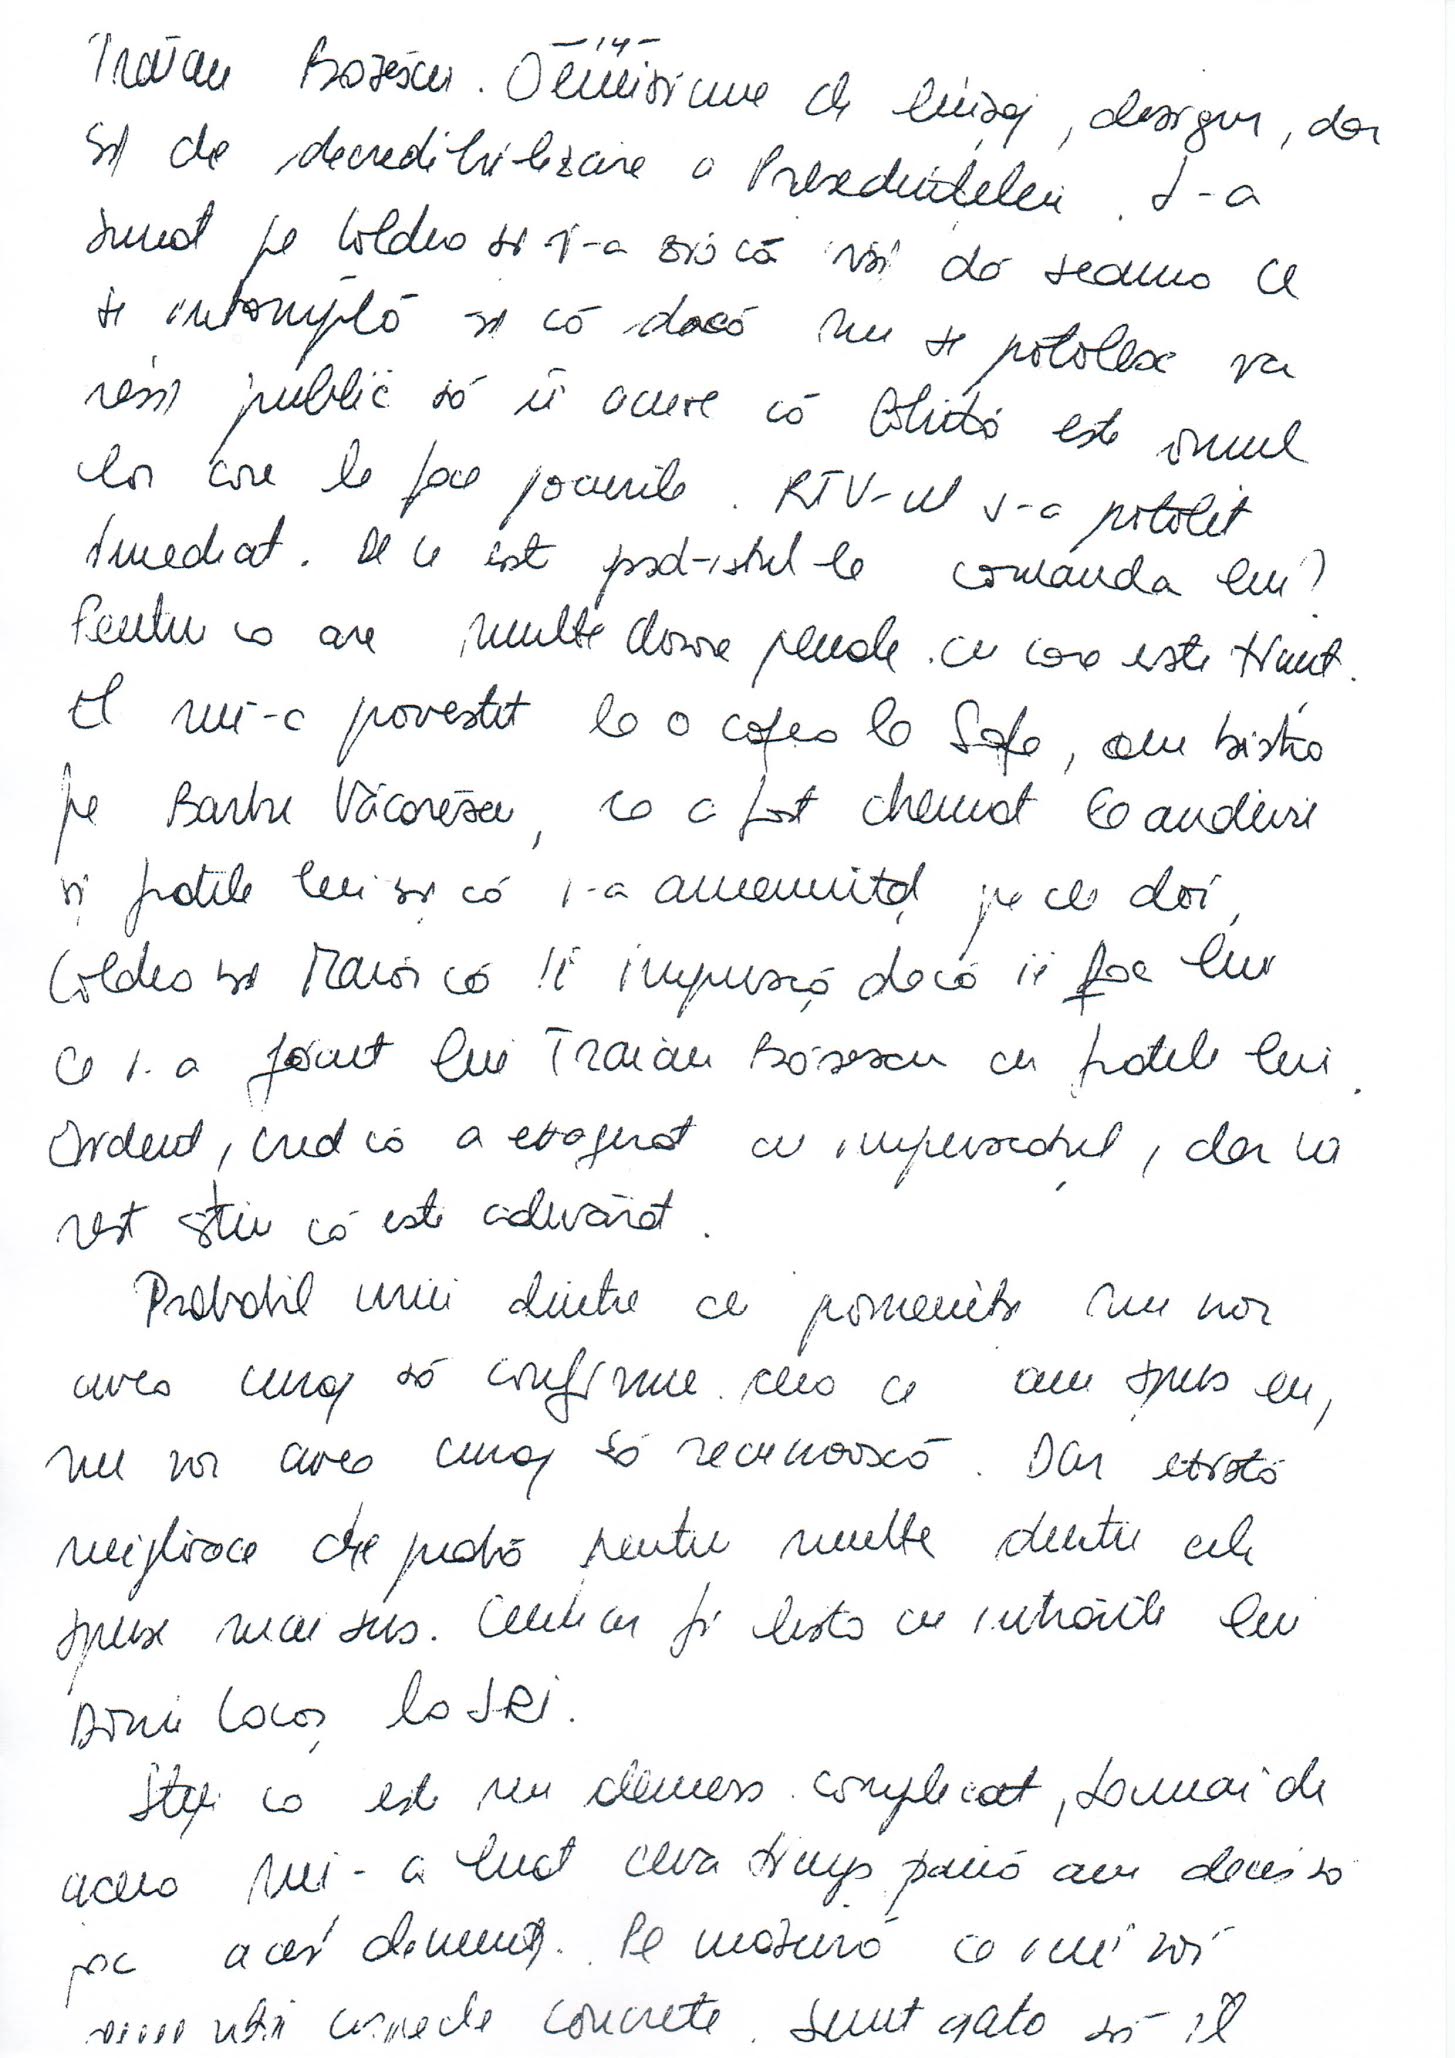 -14-
Traian Băsescu. O emisiune de linșaj, desigur, dar
și de decredibilizare a Președintelui. L-a
sunat pe Coldea si i-a zis că își dă seama ce
se intamplă si că dacă nu se potolesc va
iesi public să ii acuze că Ghiță este omul
lor care le face jocurile. RTV-ul s-a potolit
imediat. De ce est psd-istul la comanda lui?
Pentru ca are multe dosare penale cu care este tinut.
El mi-a povestit la o cafea la Safe, un bistro
pe Barbu Văcărescu, ca a fost chemat la audieri
si fratele lui si că i-a amenintat pe cei doi,
Coldea si Maior că ii impuscă dacă ii fac lui
ce i-a făcut lui Traian Băsescu cu fratele lui.
Evident, cred că a exagerat cu impuscatul, dar in
rest știu că este adevărat.
Probabil unii dintre cei pomeniti nu vor
avea curaj să confirme ceea ce am spus eu,
nu vor avea curaj să recunoască. Dar există
mijloace de probă pentru multe dintre cele
spuse mai sus. Cum ar fi lista cu intrările lui
Dorin Cocoș la SRI.
Știți ca este un demers complicat, tocmai de
aceea mi-a luat ceva timp până am decis să
fac acest denunț. Pe măsură ce imi voi
aminti lucruri concrete sunt gata să il